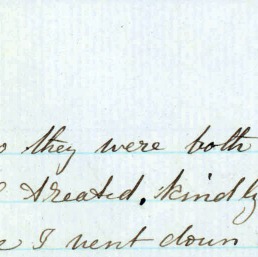 they were both
treated, kindly
I went down